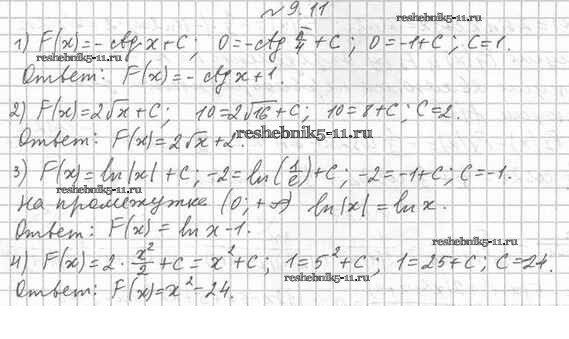 № 9.11
reshebnik5-11.ru
1) F(x)=-ctg x+C; 0=-ctg π/4+C; 0=-1+C; C=1.
reshebnik5-11.ru
Ответ: F(x)=-ctg x+1.
2) F(x)=2√x+C; 10=2√16+C; 10=8+C; C=2.
Ответ: F(x)=2√x+2.
reshebnik5-11.ru
3) F(x)=ln|x|+C; -2=ln(1/e)+C; -2=-1+C; C=-1.
reshebnik5-11.ru
На промежутке (0;+∞) ln|x|=ln x.
Ответ: F(x)=ln x-1.
reshebnik5-11.ru
4) F(x)=2·x²/2+C=x²+C; 1=5²+C; 1=25+C; C=24.
reshebnik5-11.ru
Ответ: F(x)=x²-24.